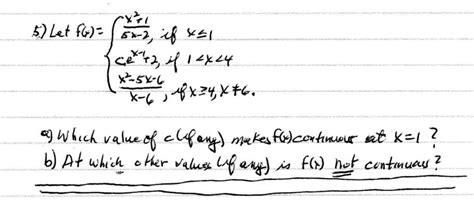 5) Let f(x)= { x²+1 / 5x-2, if x≤1
ce^x-1+2, if 1<x<4
x²-5x-6 / x-6, if x≥4, x≠6.
a) Which value of c (if any) makes f(x) continuous at x=1?
b) At which other values (if any) is f(x) not continuous?